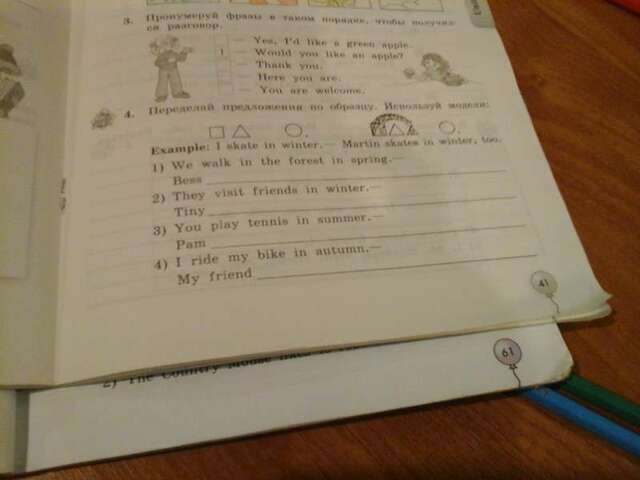 3. Пронумеруй фразы в таком порядке, чтобы получил-
ся разговор.
— Yes, I'd like a green apple.
1 — Would you like an apple?
— Thank you.
— Here you are.
— You are welcome.
4. Переделай предложения по образцу. Используй модели:
Example: I skate in winter. — Martin skates in winter, too.
1) We walk in the forest in spring.—
Bess
2) They visit friends in winter.—
Tiny
3) You play tennis in summer.—
Pam
4) I ride my bike in autumn.—
My friend
41
61
2) The Country Mouse